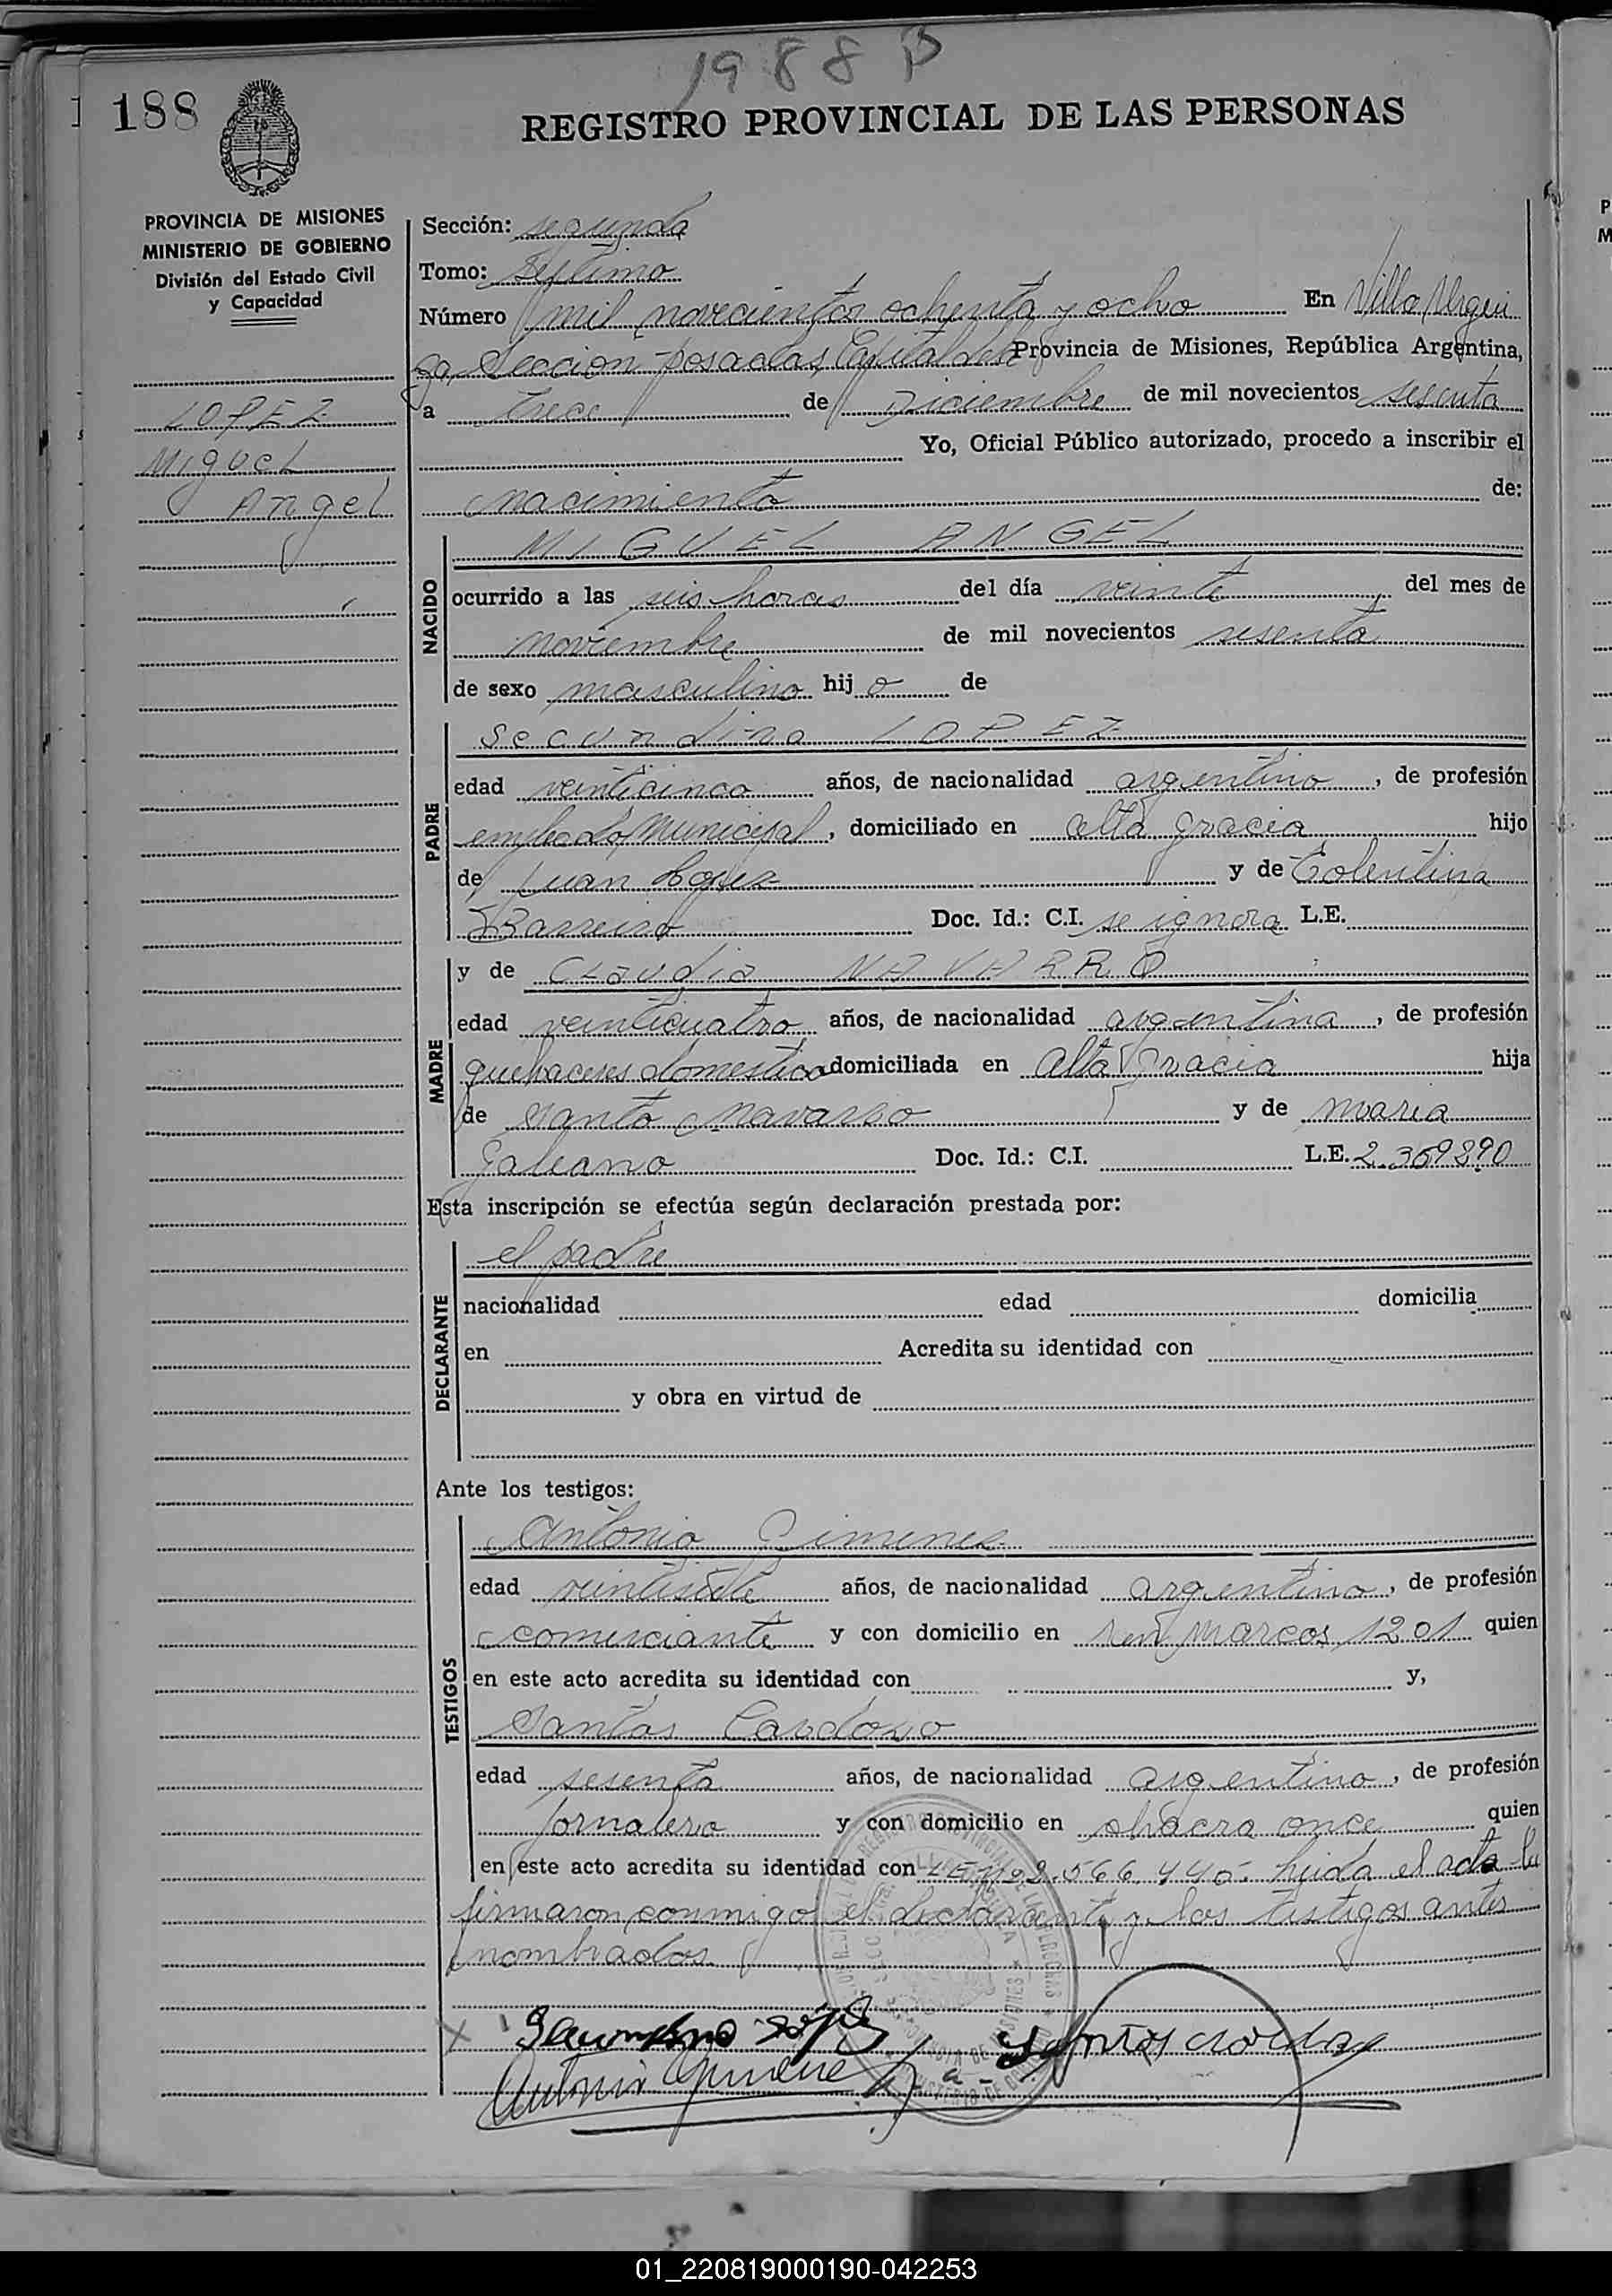 1988 B
188
REGISTRO PROVINCIAL DE LAS PERSONAS
PROVINCIA DE MISIONES
MINISTERIO DE GOBIERNO
División del Estado Civil
y Capacidad
LOPEZ
Miguel
Angel
Sección: segunda
Tomo: Septimo
Número mil novecientos ochenta y ocho En Villa Urqui
za, Seccion Posadas, Capital de la Provincia de Misiones, República Argentina,
a trece de Diciembre de mil novecientos sesenta
Yo, Oficial Público autorizado, procedo a inscribir el
nacimiento de:
NACIDO
MIGUEL ANGEL
ocurrido a las seis horas del día veinte, del mes de
noviembre de mil novecientos sesenta
de sexo masculino hijo de
PADRE
Secundino LOPEZ
edad veinticinco años, de nacionalidad argentino, de profesión
empleado Municipal, domiciliado en alta gracia hijo
de Juan Lopez y de Tolentina
Barreiro Doc. Id.: C.I. se ignora L.E.
MADRE
y de Claudia NAVARRO
edad veinticuatro años, de nacionalidad argentina, de profesión
quehaceres domestico domiciliada en Alta Gracia hija
de Santo Navarro y de maria
Galeano Doc. Id.: C.I. L.E. 2.369890
Esta inscripción se efectúa según declaración prestada por:
DECLARANTE
el padre
nacionalidad edad domicilia
en Acredita su identidad con
y obra en virtud de
Ante los testigos:
TESTIGOS
Antonio Gimenez
edad veintisiete años, de nacionalidad argentino, de profesión
comerciante y con domicilio en Marcos 1201 quien
en este acto acredita su identidad con y,
Santos Cardozo
edad sesenta años, de nacionalidad argentino, de profesión
jornalero y con domicilio en chacra once quien
en este acto acredita su identidad con L.E.Nº 2.566.440. leida el acta la
firmaron conmigo el declarante y los testigos antes
nombrados.
Secundino Lopez
Antonio Gimenez
01_220819000190-042253